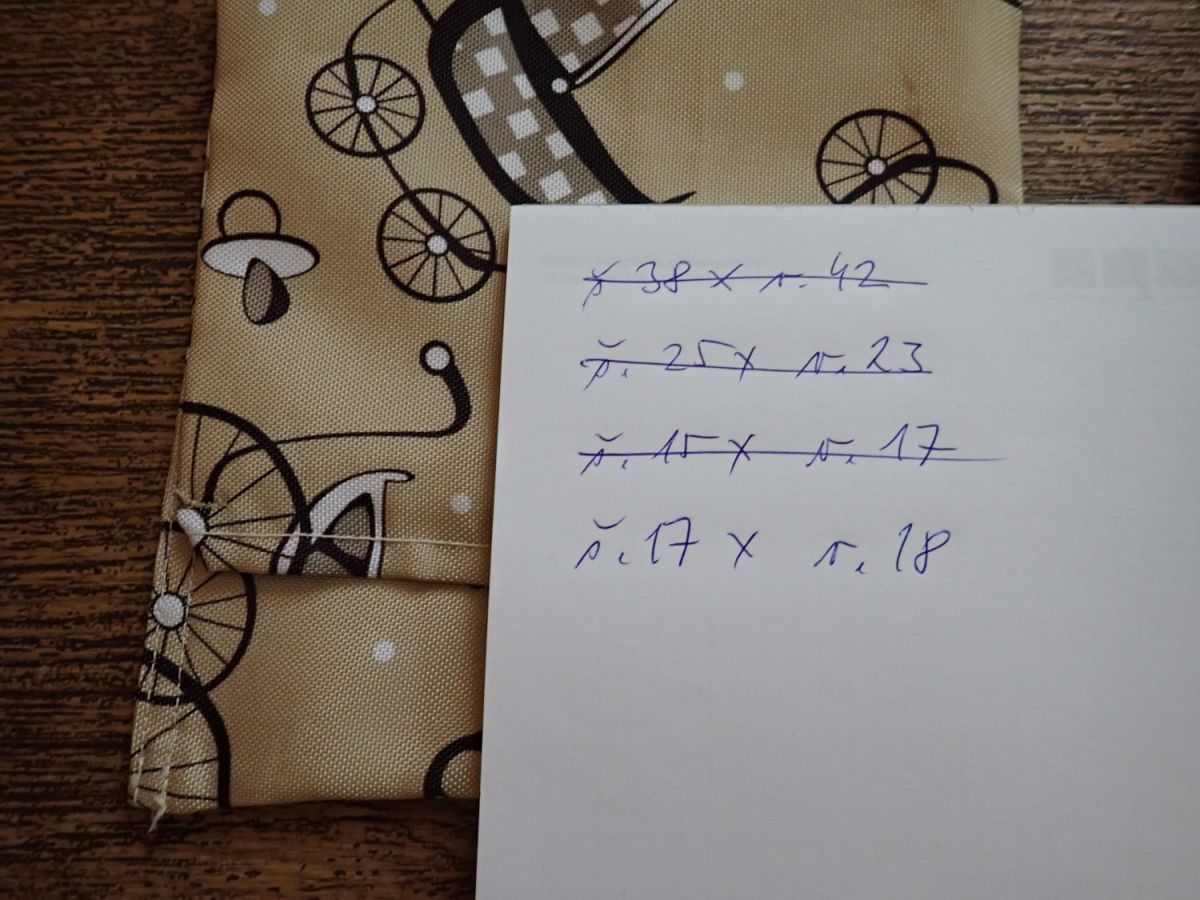 š 38 x v. 42
š. 25 x v. 23
š. 15 x v. 17
š. 17 x v. 18